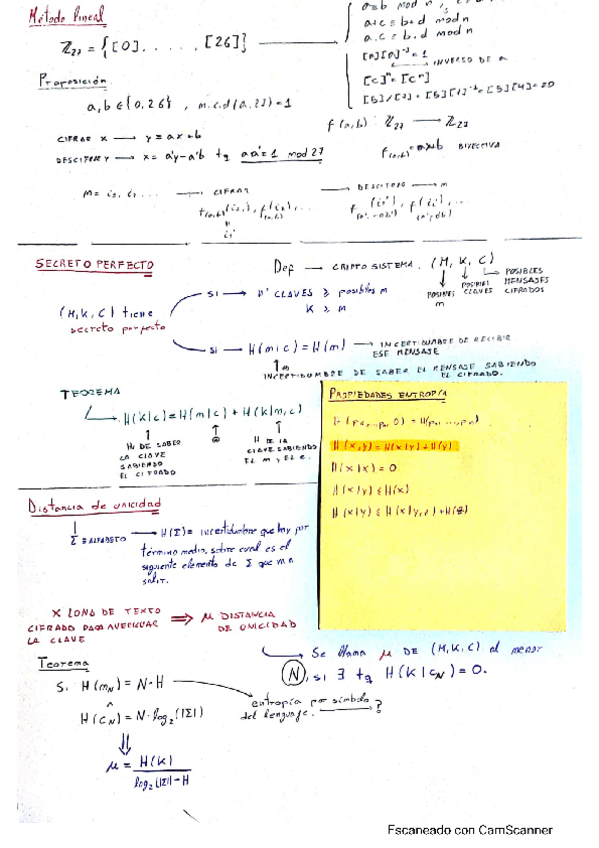 Método lineal
a≡b mod n
a+c ≡ b+d mod n
a.c ≡ b.d mod n
Z₂₇ = {[0], . . . . , [26]}
[a][a]⁻¹ = 1
INVERSO DE a
[c]ⁿ = [cⁿ]
Proposición
a,b ∈ {0,26} , m.c.d(a,27)=1
f(a,b) : Z₂₇ → Z₂₇
CIFRAR x → y = ax+b
DESCIFRAR y → x = a'y - a'b tq aa'=1 mod 27
f(a,b) = ax+b BIYECTIVA
→ CIFRAR
→ m
SECRETO PERFECTO
Def → CRIPTOSISTEMA. (M, K, C)
POSIBLES m
POSIBLES CLAVES
POSIBLES MENSAJES CIFRADOS
(M,K,C) tiene
secreto perfecto
SI → Nº CLAVES ≥ posibles m
K ≥ m
SI → H(m|c) = H(m) → INCERTIDUMBRE DE RECIBIR
ESE MENSAJE
INCERTIDUMBRE DE SABER EL MENSAJE SABIENDO
EL CIFRADO.
TEOREMA
H(k|c) = H(m|c) + H(k|m,c)
H DE SABER
LA CLAVE
SABIENDO
EL CIFRADO
H DE LA
CLAVE SABIENDO
EL m y EL c.
PROPIEDADES ENTROPÍA
H(x,y) = H(x|y) + H(y)
H(x|x) = 0
H(x|y) ≤ H(x)
H(x|y) ≤ H(x|y,z) + H(z)
Distancia de unicidad
Σ ≡ ALFABETO → H(Σ) = incertidumbre que hay por
término medio, sobre cual es el
siguiente elemento de Σ que va a
salir.
X LONG DE TEXTO
CIFRADO PARA AVERIGUAR
LA CLAVE
⇒ μ DISTANCIA
DE UNICIDAD
Se llama μ DE (M,K,C) al menor
N, si ∃ tq H(K|c_N) = 0.
Teorema
Si H(m_N) = N·H
^
H(c_N) = N·log₂(|Σ|)
entropía por símbolo
del lenguaje. → ?
μ = H(K) / log₂|Σ| - H
Escaneado con CamScanner